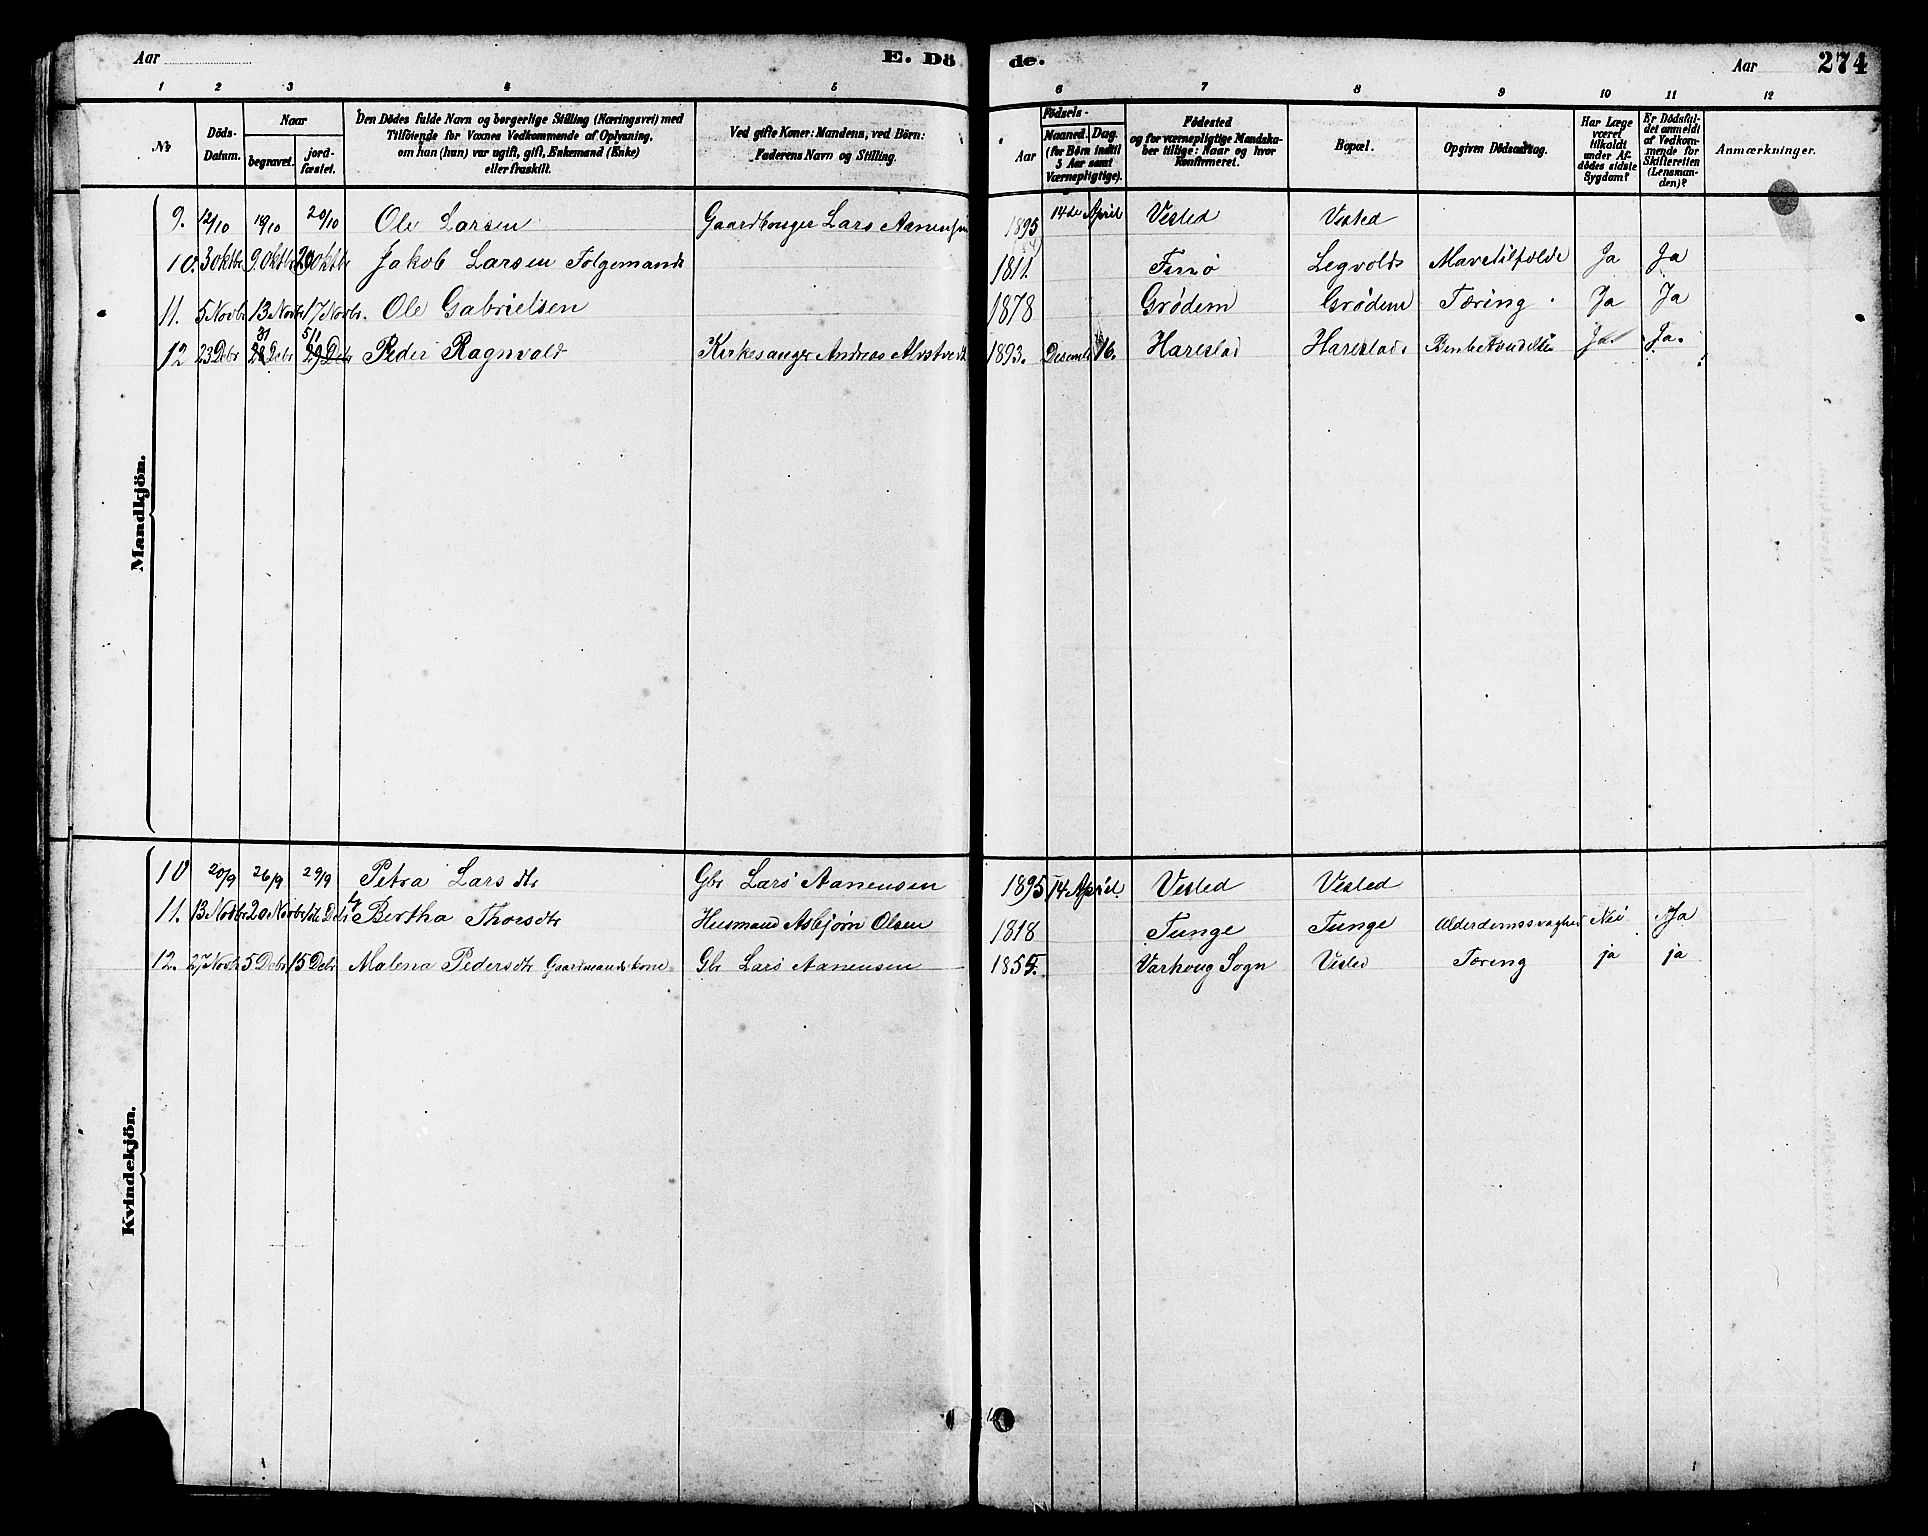 Aar E. Dö de. Aar 274
1 2 3 4 5 6 7 8 9 10 11 12
No. Döds-Datum. Naar begravet. jord-fæstet. Den Dödes fulde Navn og borgerlige Stilling (Næringsvei) med Tilföiende for Voxnes Vedkommende af Oplysning, om han (hun) var ugift, gift, Enkemand (Enke) eller fraskilt. Ved gifte Koner: Mandens, ved Börn: Faderens Navn og Stilling. Födsels- Aar Maaned. Dag. (for Börn indtil 5 Aar samt Værnepligtige). Födested og for værnepligtige Mandskaber tillige: Naar og hvor Konfirmeret. Bopæl. Opgiven Dödsaarsag. Har Læge været tilkaldt under Afdödes sidste Sygdom? Er Dödsfaldet anmeldt af Vedkommende for Skifteretten (Lensmanden)? Anmærkninger.
Mandkjön.
9. 12/10 19/10 20/10 Ole Larsen Gaardbruger Lars Aanensen 1895 14de April Vested Vested
10. 3 oktbr 9. Oktbr 20 Oktbr Jakob Larsen Folgemand 1811. Finö Legvolds Mavetilfælde Ja Ja
11. 5 Novbr 13 Novbr 17 Novbr. Ole Gabrielsen 1878 Grødem Grødem Tæring. Ja Ja
12 23 Debr 31 28 Debr 5/1 29 Debr Peder Ragnvald Kirkesanger Andreas Alvstvedt 1893. Desemb. 16. Harestad Harestad. Ja. Ja.
Kvindekjön.
10 20/9 26/9 29/9 Petra Larsdtr Gbr Lars Aanensen 1895 14 April. Vested Vested
11. 13 Novbr 20 Novbr 1ste Debr Bertha Thorsdtr Husmand Asbjørn Olsen 1818 Tunge Tunge Alderdomssvaghed Nei Ja
12. 27 Novbr 5 Debr 15 Debr Malena Pedersdtr Gaardmandskone Gbr Lars Aanensen 1855. Varhoug Sogn Vested Tæring ja ja